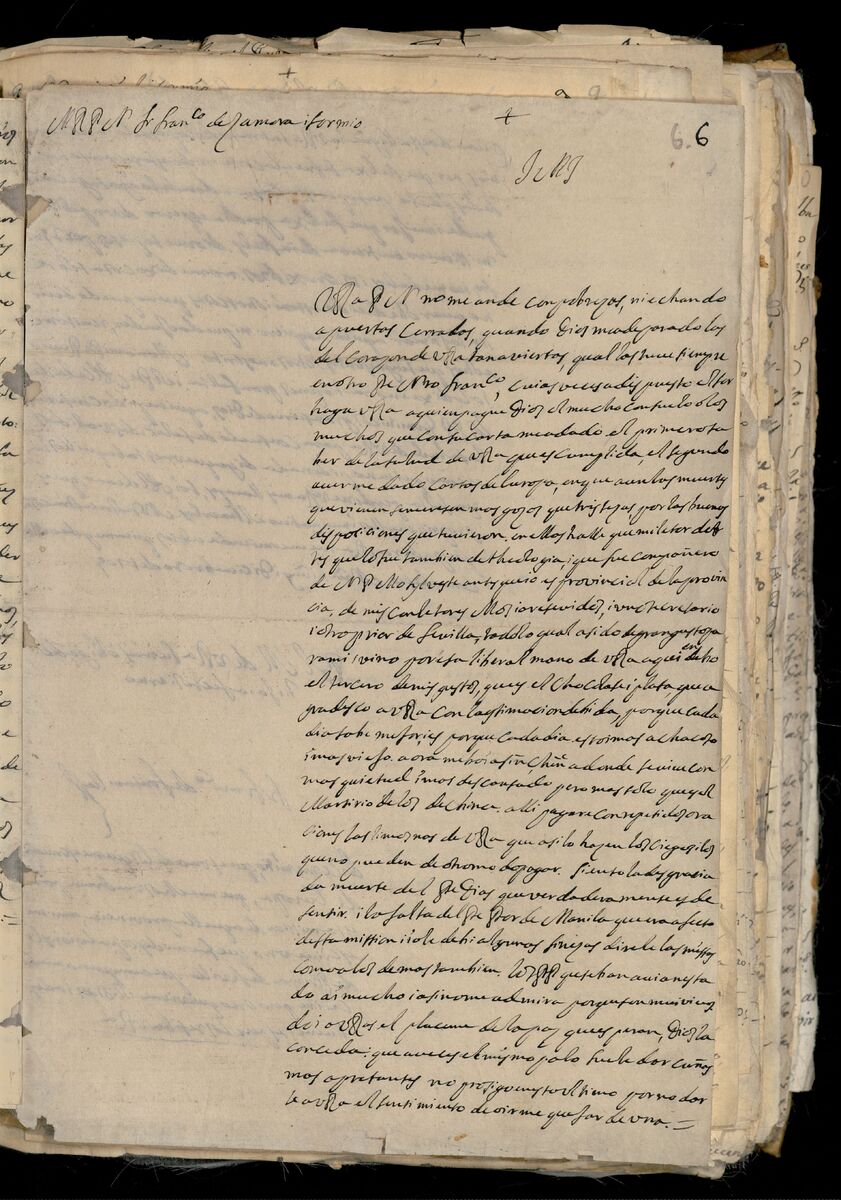 M R P N fr franco de Zamora i sormio
+
6. 6
J M J
VRa P N no me ande con pobrezas, ni echando
a puertas Cerradas, quando Dios me a dejarado las
del Corazon de VRa tan aviertas, qual las tuve siempre
en otro Pe Nro franco, cuias veces a dispuesto el Sor
haga VRa a quien pague Dios el mucho consuelo o los
muchos que con su carta me a dado. el primero sa
ber de la salud de VRa que es cumplida, el segundo
averme dado cartas de Europa, en que aun las muertes
que vienen, son mas gozos que tristezas, por las buenas
disposiciones que tuvieron, en ellas halle que mi letor de Ar
tes que lo fue tambien de theologia, i que fue compañero
de N P es provincial de la provin
cia, de mis Conletores secretario
i otro prior de Sevilla, todo lo qual a sido de gran gusto pa
ra mi, i vino por esa liberal mano de VRa a qui en devo
el tercero de mis gustos, que es el Chocolate i plata, que a
gradesco a VRa con la estimacion devida, porque cada
dia sabe mejor, es porque cada dia estoi mas achacoso
i mas viejo. aora me voi a sin Chiñ a donde se vive con
mas quietud i mas descansado pero mas solo que el
Martirio de los de China. alli pagare con repetidas ora
ciones las limosnas de VRa que asi lo hazen los ciegos i los
que no pueden de otro modo pagar. Siento la desgracia
da muerte del Pe Dias que verdaderamente es de
sentir. i la falta del Pe Por de Manila que era afecto
desta mission i io le devi algunas finezas direle las missas
como a los demas tambien. los PP que se ban avian esta
do ai mucho i asi no me admira
doi a VRas el placeme de la paz que esperan, Dios la
conceda: que a veces el mismo palo suele dar cuñas
mas apretantes no prosigo en esto ultimo por no dar
le a VRa el sentimiento de oirme quejar de una. =